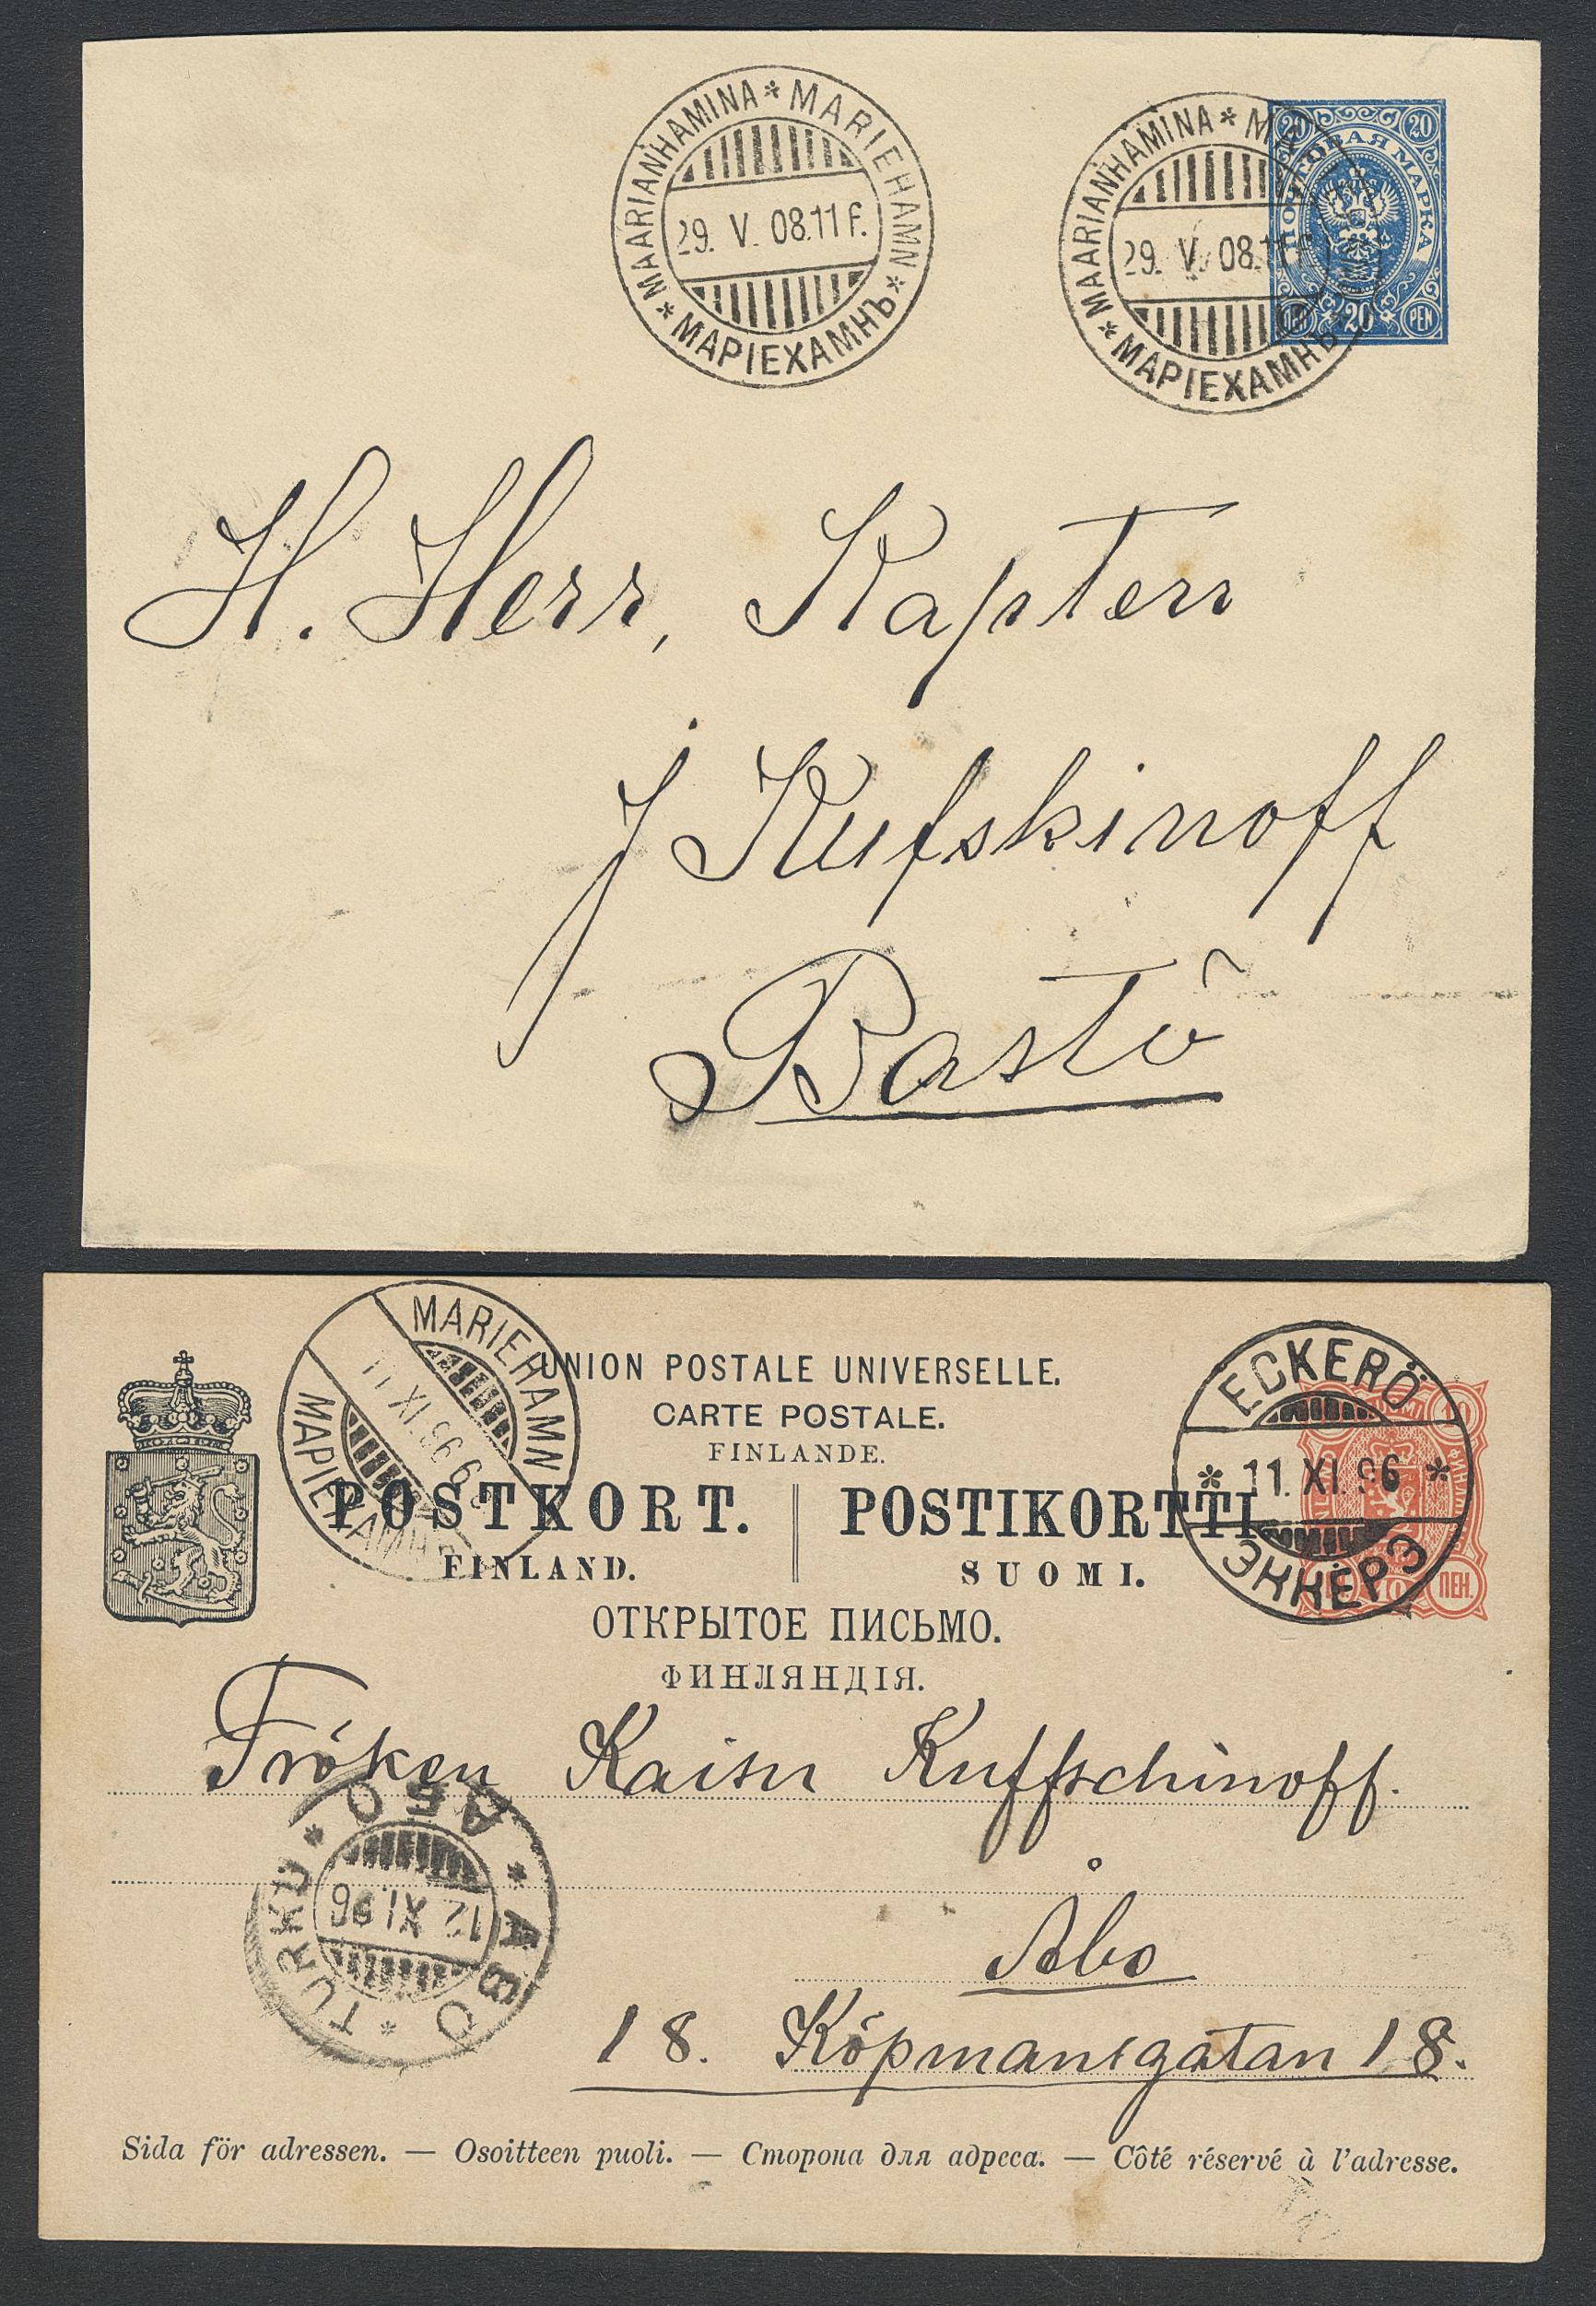 * MAARIANHAMINA * MARIEHAMN * МАРІЕХАМНЪ
29. V. 08.11 F.
* MAARIANHAMINA * MA
МАРІЕХАМНЪ
29. V. 08.11 F.
20 20
ПОЧТОВАЯ МАРКА
ПЕН 20 PEN
H. Herr, Kapten
J Kufskinoff
Bastö
MARIEHAMN
11 XI 96 6
МАРІЕХАМНЪ
UNION POSTALE UNIVERSELLE.
CARTE POSTALE.
FINLANDE.
POSTKORT. POSTIKORTTI
FINLAND. SUOMI.
ОТКРЫТОЕ ПИСЬМО.
ФИНЛЯНДІЯ.
ECKERÖ
* 11. XI. 96 *
ЭККЕРЭ
10
10 ПЕН.
Fröken Kaisu Kuffschinoff.
Åbo
18. Köpmansgatan 18.
* АБО * ABO * TURKU
12 XI. 96
Sida för adressen. — Osoitteen puoli. — Сторона для адреса. — Côté réservé à l'adresse.